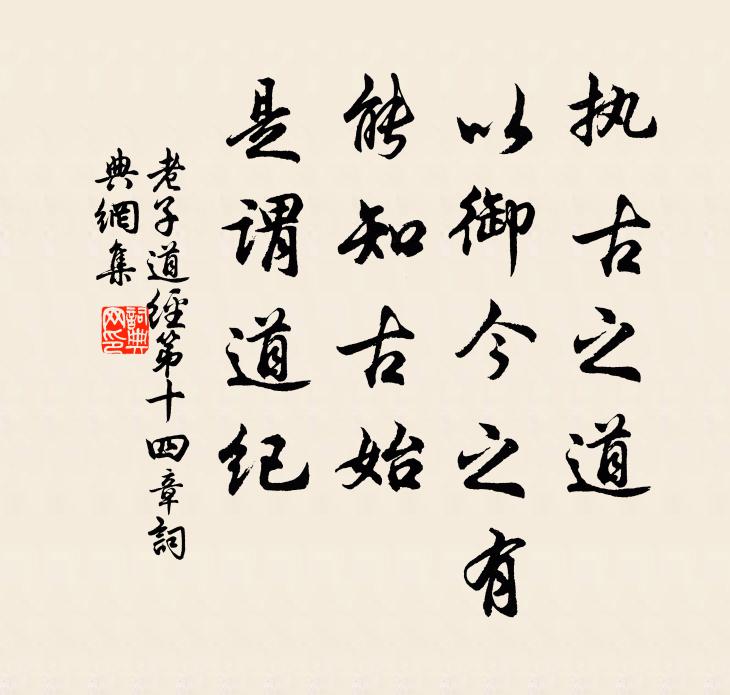 执古之道
以御今之有
能知古始
是谓道纪
老子道經第十四章詞
典網集
詞典
网印